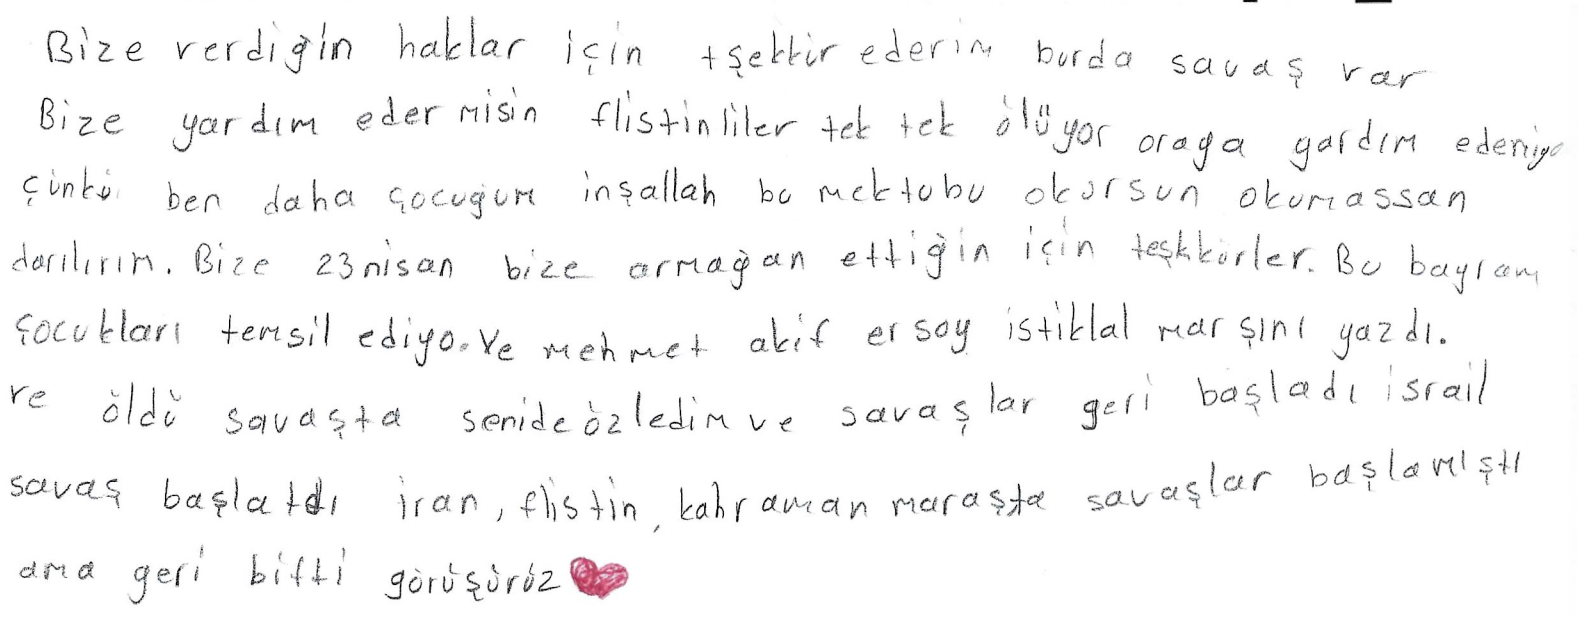 Bize verdiğin haklar için tşekkür ederim burda savaş var
Bize yardım eder misin flistinliler tek tek ölüyor oraya yardım edemiyo
çünkü ben daha çocuğum inşallah bu mektubu okursun okumassan
darılırım. Bize 23 nisan bize armağan ettiğin için teşkkürler. Bu bayram
çocukları temsil ediyo. Ve mehmet akif ersoy istiklal marşını yazdı.
ve öldü savaşta senide özledim ve savaşlar geri başladı israil
savaş başlatdı iran, flistin, kahramanmaraşta savaşlar başlamıştı
ama geri bitti görüşürüz